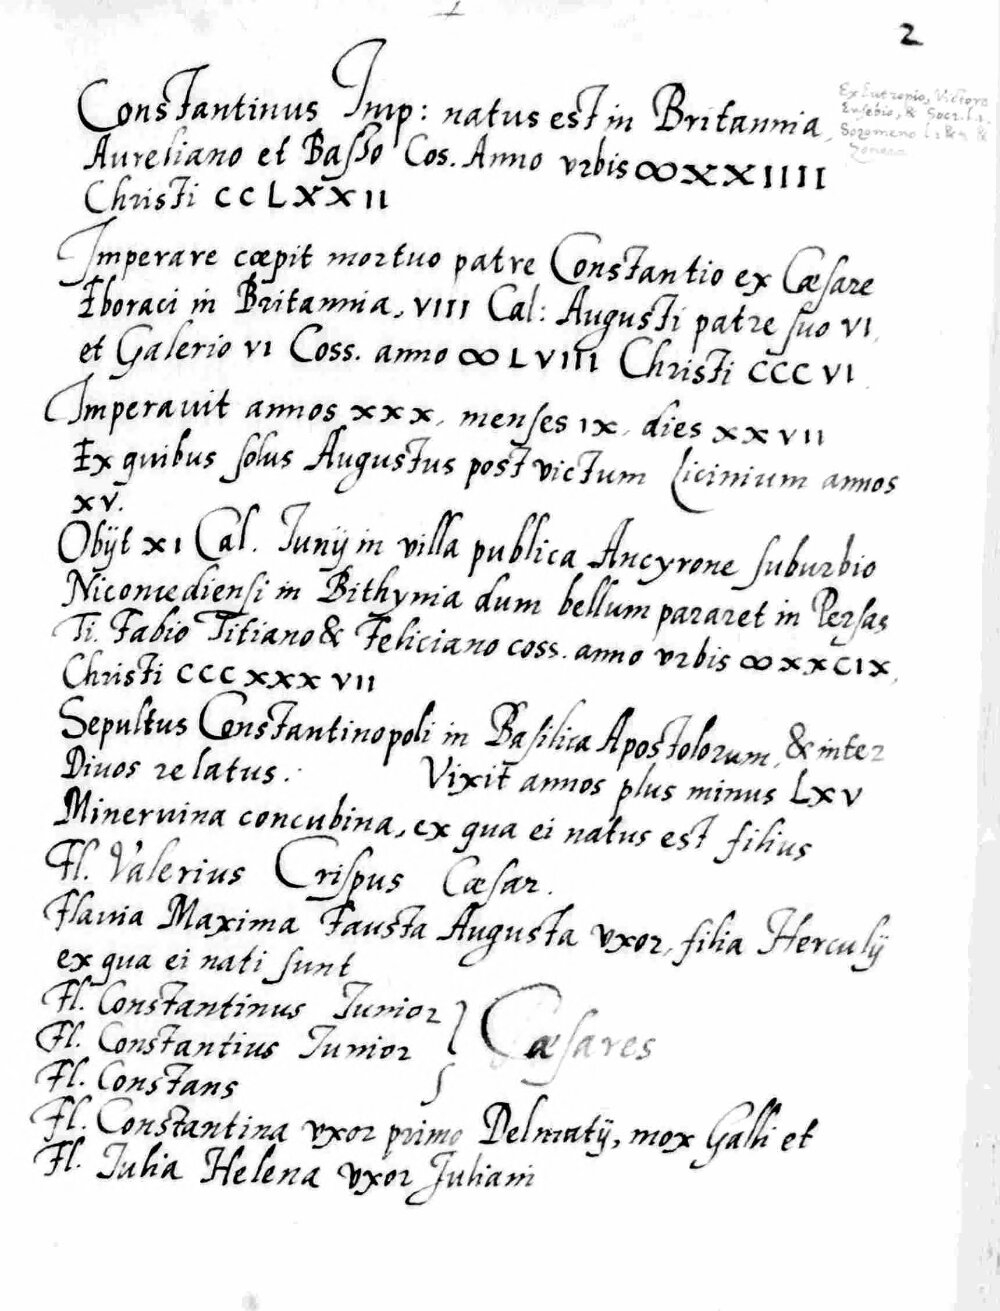 2
Constantinus Imp: natus est in Britannia,
Ex Eutropio, Victore
Eusebio, & Socr. l. 1.
Sozomeno &
Zonara
Aureliano et Basso Cos. Anno vrbis ∞XXIIII
Christi CCLXXII
Imperare cœpit mortuo patre Constantio ex Cæsare
Eboraci in Britannia, VIII Cal: Augusti patre suo VI,
et Galerio VI Coss. anno ∞LVIII Christi CCCVI.
Imperauit annos XXX, menses IX, dies XXVII
Ex quibus solus Augustus post victum Licinium annos
XV.
Obijt XI Cal. Iunij in villa publica Ancyrone suburbio
Nicomediensi in Bithynia dum bellum pararet in Persas
Ti. Fabio Titiano & Feliciano coss. anno vrbis ∞XXCIX,
Christi CCCXXXVII
Sepultus Constantinopoli in Basilica Apostolorum, & inter
Diuos relatus. Vixit annos plus minus LXV
Mineruina concubina, ex qua ei natus est filius
Fl. Valerius Crispus Cæsar.
Flauia Maxima Fausta Augusta vxor, filia Herculij
ex qua ei nati sunt
Fl. Constantinus Iunior
Fl. Constantius Iunior } Cæsares
Fl. Constans
Fl. Constantina vxor primo Delmatij, mox Galli et
Fl. Iulia Helena vxor Iuliani